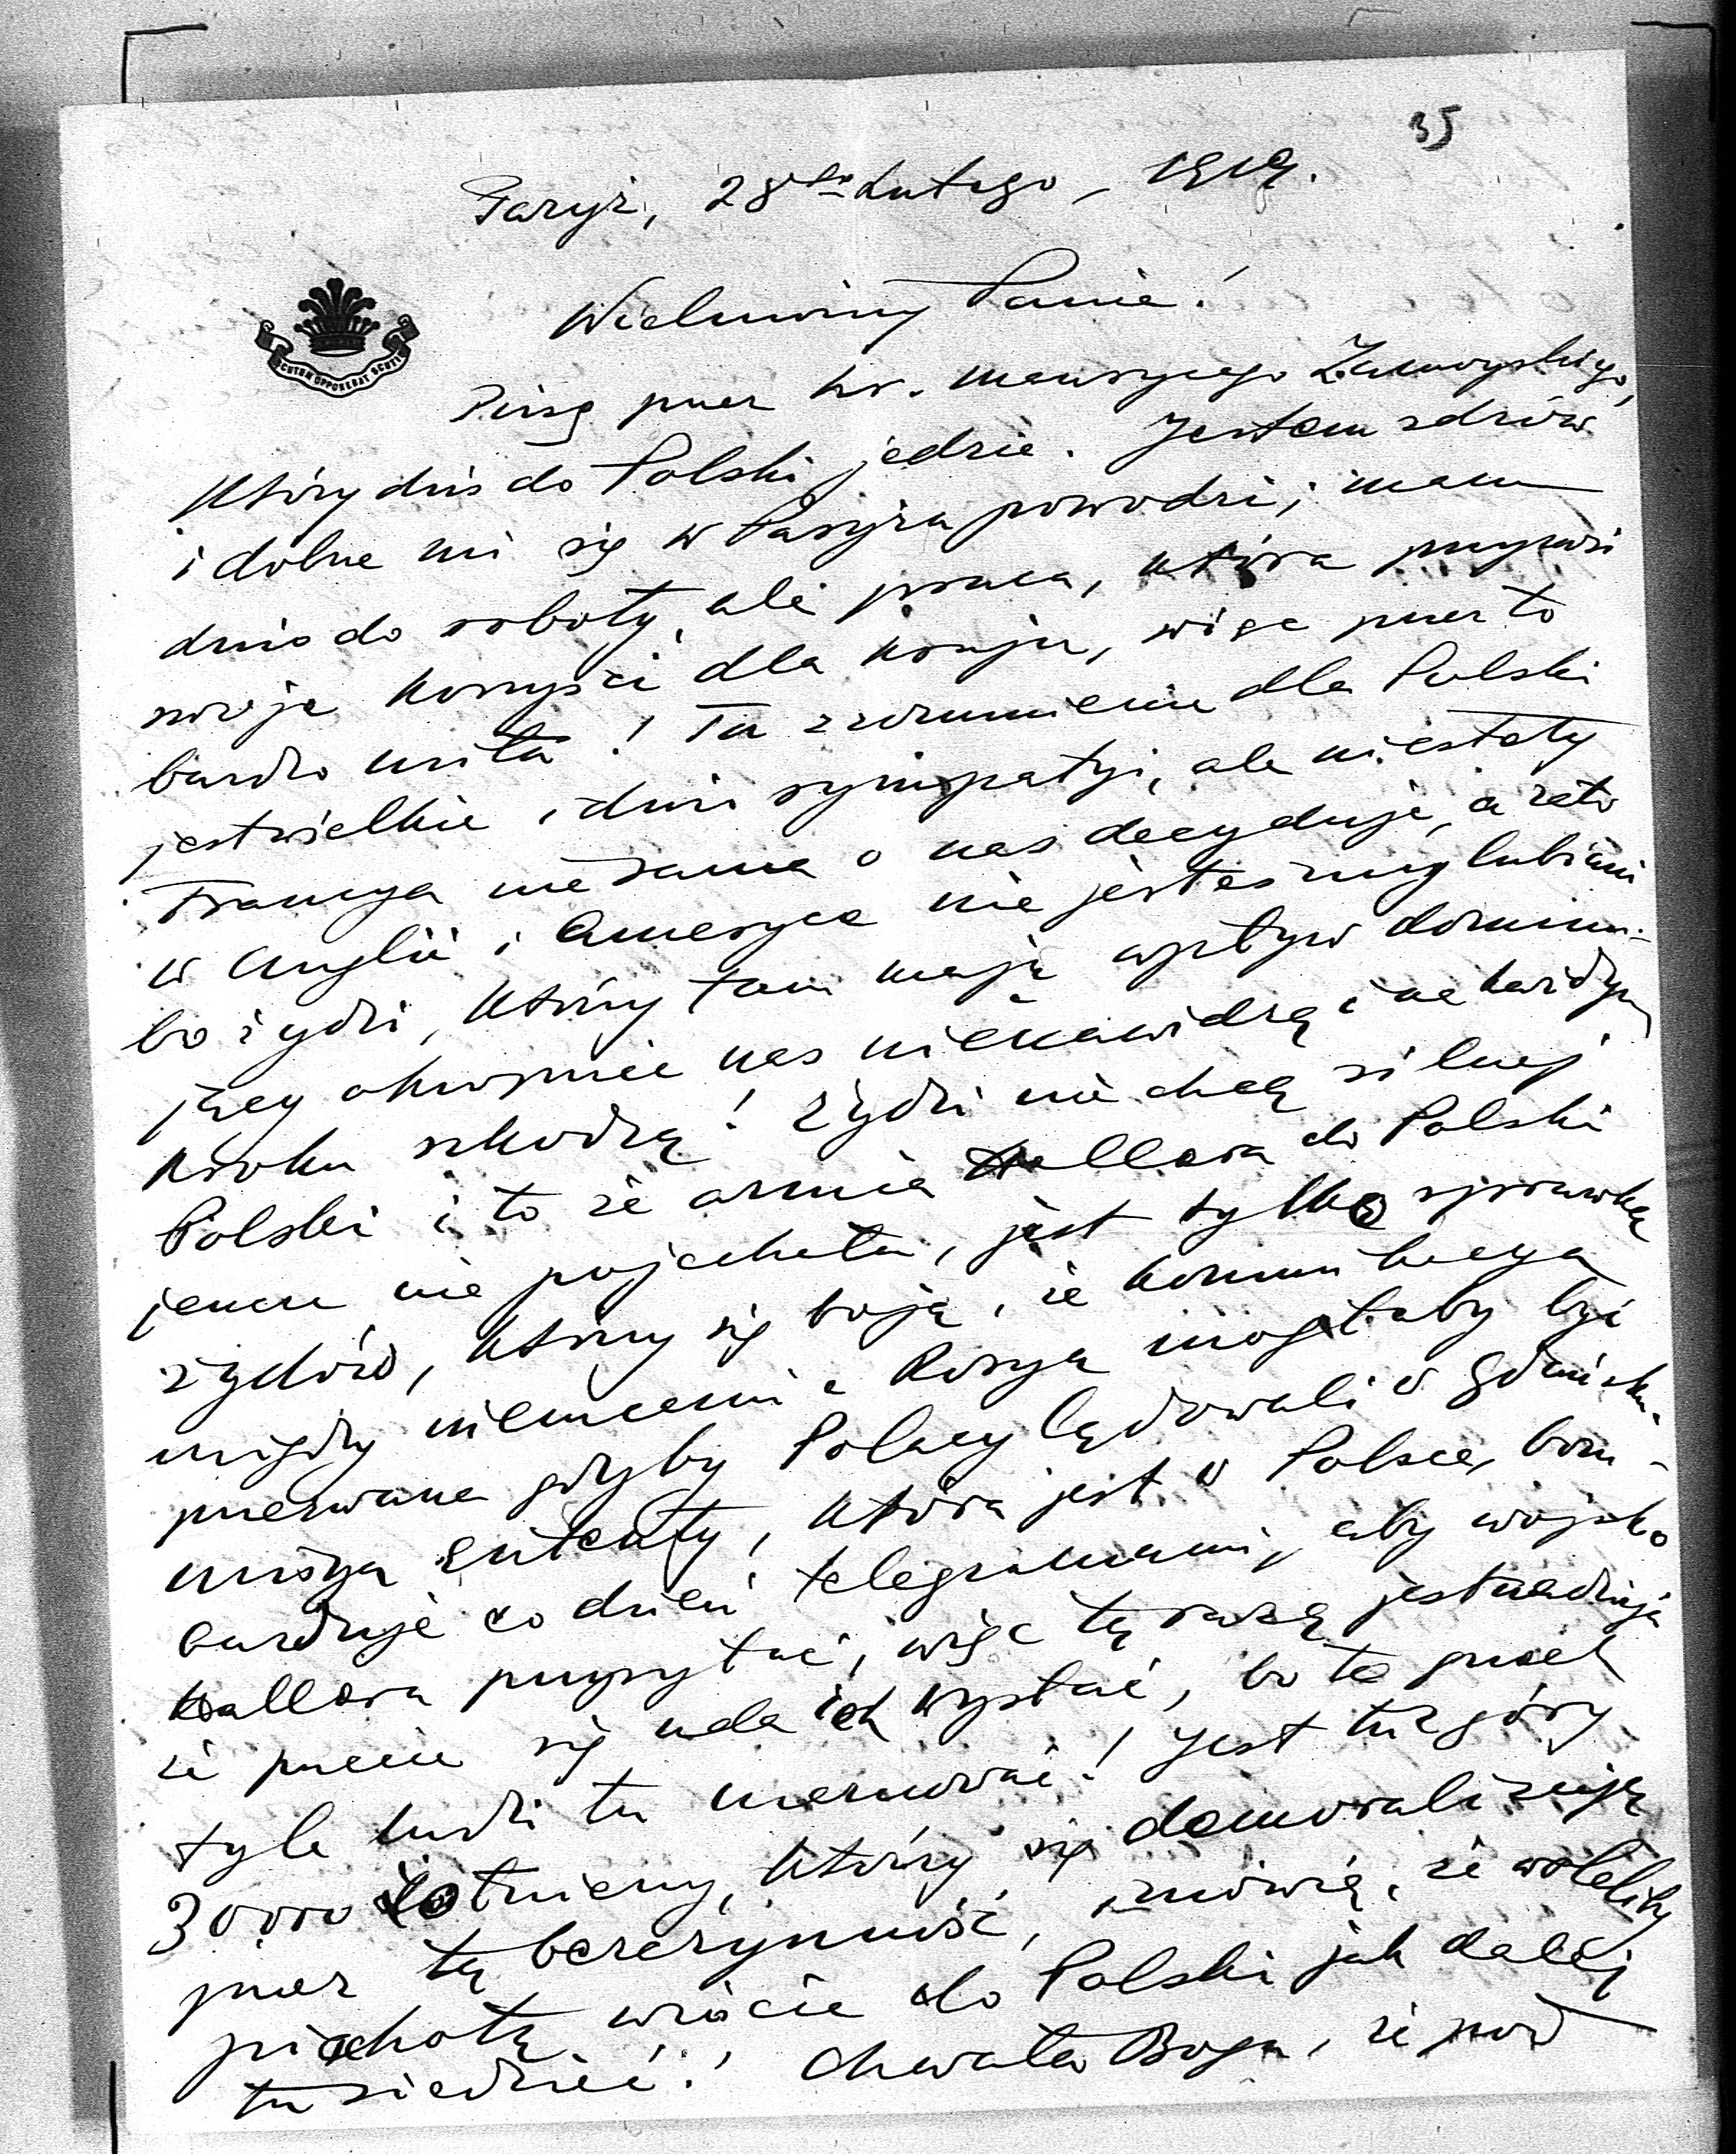 35
Paryż, 28go Lutego, 1919.
Wielmożny Panie!
SCUTUM OPPONEBAT SCUTIS
Piszę przez hr. Maurycego Zamoyskiego,
który dziś do Polski jedzie. Jestem zdrów
i dobrze mi się w Paryżu powodzi; mam
dużo do roboty, ale praca, która przynosi
swoje korzyści dla kraju, więc przez to
bardzo miła! Tu zrozumienie dla Polski
jest wielkie i dużo sympatyi, ale niestety
Francya nie sama o nas decyduje, a zato
w Anglii i Ameryce nie jesteśmy lubiani
bo żydzi, którzy tam mają wpływ dominu-
jący okropnie nas nienawidzą i na każdym
kroku szkodzą! Żydzi nie chcą silnej
Polski i to że armia Hallera do Polski
jeszcze nie pojechała, jest tylko sprawką
żydów, którzy się boją, że komunikacya
między niemcami a Rosyą mogłaby być
przerwana gdyby Polacy lądowali w Gdańsku.
Misya Ententy, która jest w Polsce, bom-
barduje co dzień telegramami, aby wojsko
Hallera przysłać, więc tę razą jest nadzieja
że przecie się uda ich wysłać, bo to grzech
tyle ludzi tu marnować! Jest tu z góry
30000 żołnierzy, którzy się demoralizują
przez tę bezczynność, i mówią, że woleliby
piechotą wrócić do Polski jak dalej
tu siedzieć! Chwała Bogu, że pod